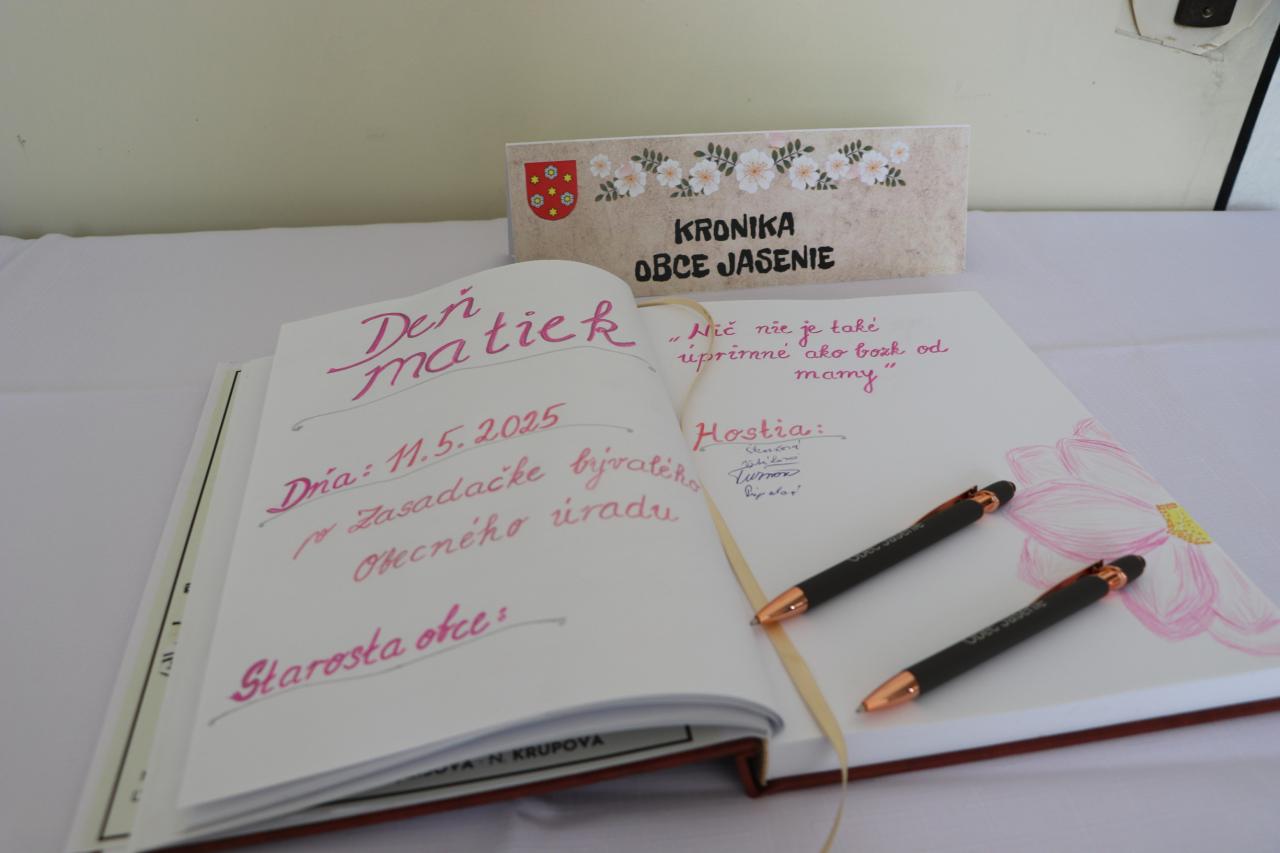 KRONIKA
OBCE JASENIE
Deň
matiek
Dňa: 11.5.2025
v zasadačke bývalého
obecného úradu
Starosta obce:
„Nič nie je také
úprimné ako bozk od
mamy"
Hostia:
Obec Jasenie
Obec Jasenie
N. KRUPOVA